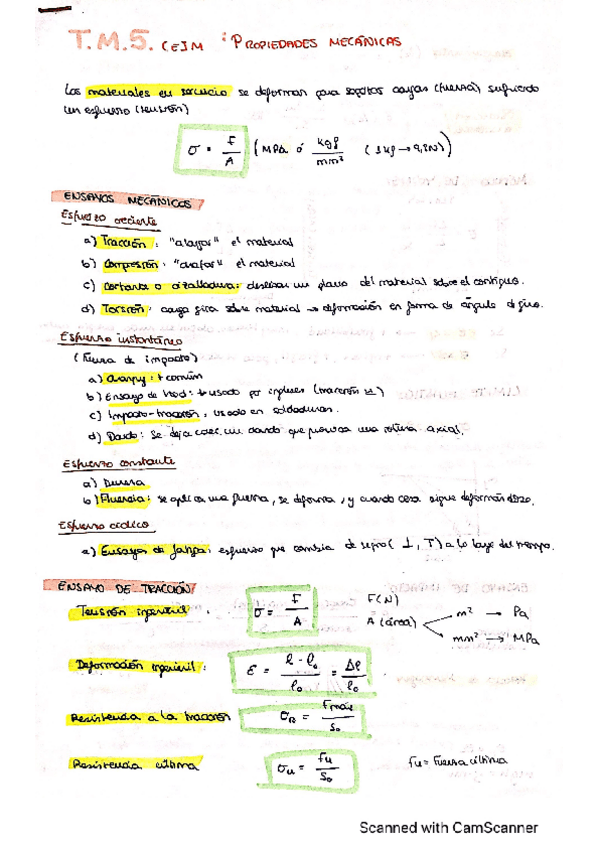 T.M.5. CEIM : PROPIEDADES MECÁNICAS
Los materiales en servicio se deforman para soportar cargas (fuerza) sufriendo
un esfuerzo (tensión)
σ = F/A (MPa ó kgf/mm² (1kgf → 9,8N))
ENSAYOS MECÁNICOS
Esfuerzo creciente
a) Tracción: "alargar" el material
b) Compresión: "chafar" el material
c) Cortante o cizalladura: deslizar un plano del material sobre el contiguo.
d) Torsión: carga gira sobre material → deformación en forma de ángulo de giro.
Esfuerzo instantáneo
(Fuerza de impacto)
a) Charpy: + común
b) Ensayo de Izod: + usado por ingleses
c) Impacto-tracción: usado en soldaduras.
d) Dardo: Se deja caer un dardo que provoca una rotura axial.
Esfuerzo constante
a) Dureza
b) Fluencia: se aplica una fuerza, se deforma, y cuando cesa sigue deformándose.
Esfuerzo cíclico
a) Ensayos de fatiga: esfuerzo que cambia de signo a lo largo del tiempo.
ENSAYO DE TRACCIÓN
Tensión ingenieril: σ = F/A F(N) A (área) m² → Pa
mm² → MPa
Deformación ingenieril: ε = l - l₀ / l₀ = Δl / l₀
Resistencia a la tracción σR = Fmáx / S₀
Resistencia última σu = Fu / S₀ Fu = Fuerza última
Scanned with CamScanner